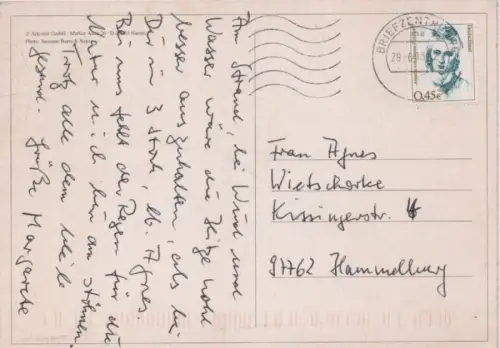 Am Strand, bei Wind und
Wasser wäre die Hitze wohl
besser auszuhalten, als bei
Dir in 3. Stock, lb. Agnes
Bei uns fehlt der Regen für die
Natur u. ich bin am stöhnen.
Trotz alle dem bleibe
gesund. Grüße Margarete
BRIEFZENTR
29.-6.
Deutschland
0,45€
Frau Agnes
Wietschorke
Kissingerstr. 4
97762 Hammelburg